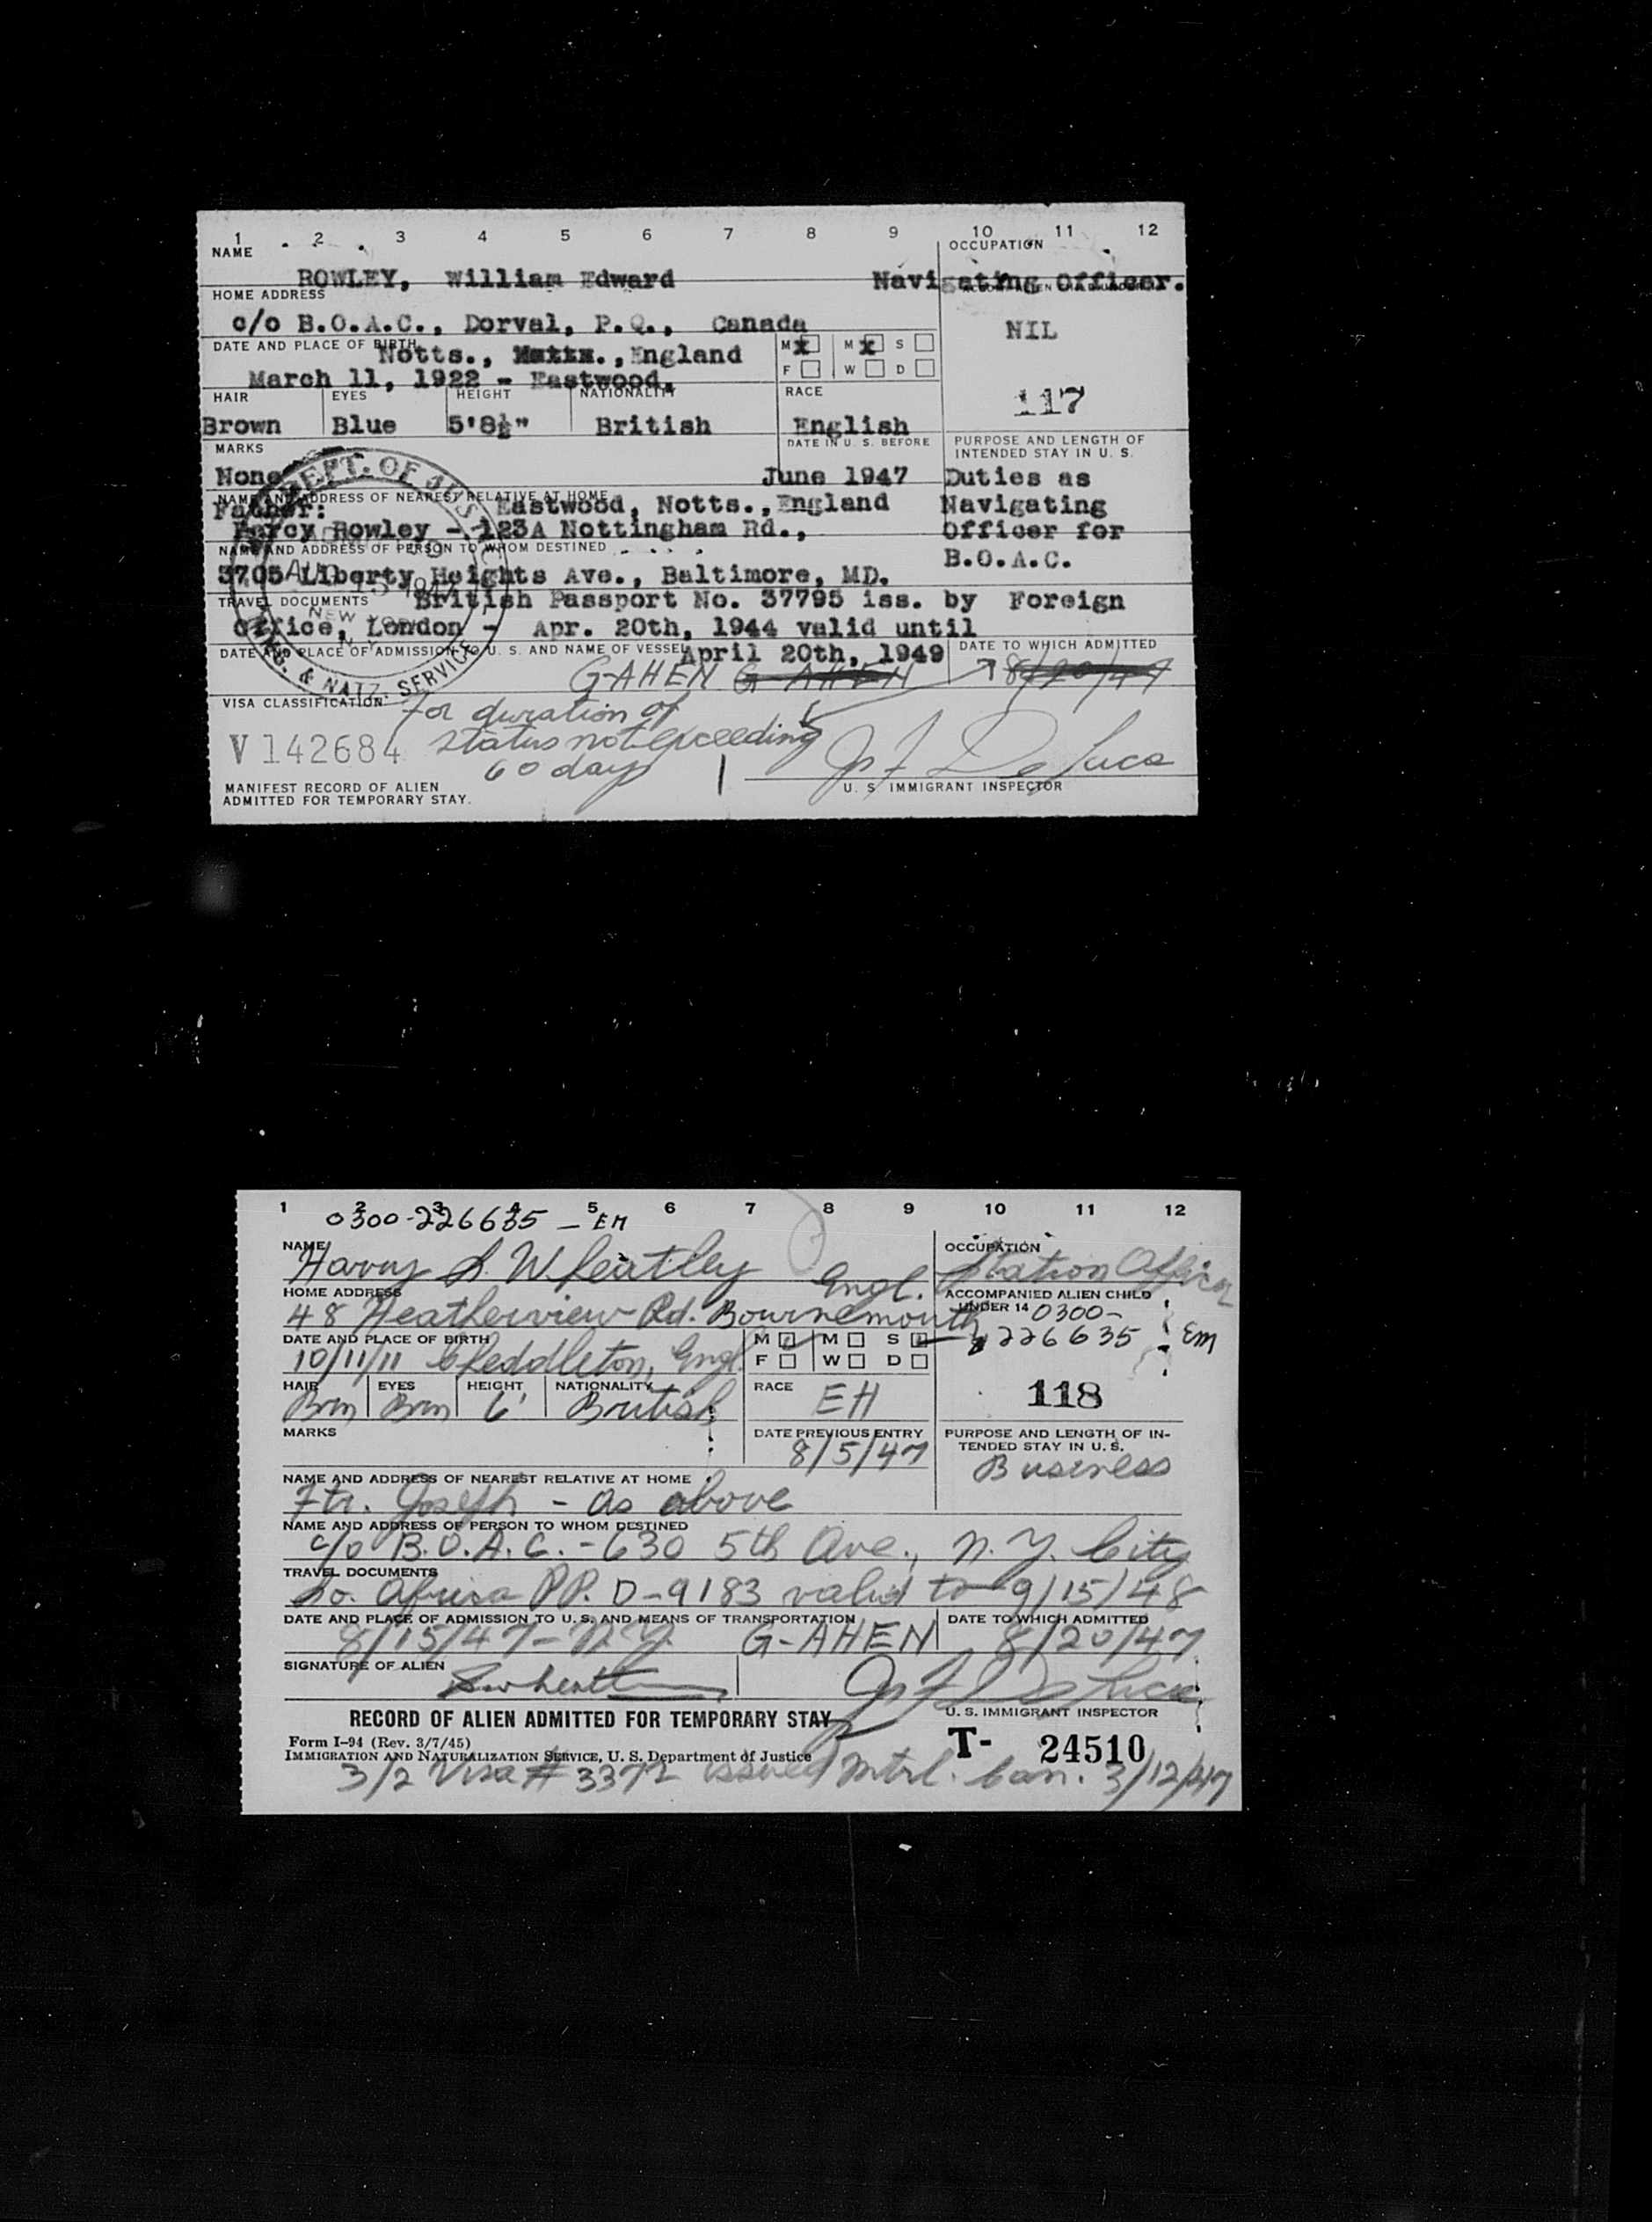 1 2 3 4 5 6 7 8 9 10 11 12
NAME OCCUPATION
ROWLEY, William Edward Navigating Officer.
HOME ADDRESS
c/o B.O.A.C., Dorval, P.Q., Canada NIL
DATE AND PLACE OF BIRTH M x M x S
Notts., England
F W D
March 11, 1922 - Eastwood,
HAIR EYES HEIGHT NATIONALITY RACE 117
Brown Blue 5'8½" British English
MARKS DATE IN U. S. BEFORE PURPOSE AND LENGTH OF
INTENDED STAY IN U. S.
None June 1947 Duties as
NAME AND ADDRESS OF NEAREST RELATIVE AT HOME
Father: Eastwood, Notts., England Navigating
Percy Rowley - 123A Nottingham Rd., Officer for
NAME AND ADDRESS OF PERSON TO WHOM DESTINED B.O.A.C.
3705 Liberty Heights Ave., Baltimore, MD.
TRAVEL DOCUMENTS British Passport No. 37795 iss. by Foreign
Office, London - Apr. 20th, 1944 valid until
DATE AND PLACE OF ADMISSION TO U. S. AND NAME OF VESSEL April 20th, 1949 DATE TO WHICH ADMITTED
G-AHEN G-AHEN 8/20/47
VISA CLASSIFICATION for duration of
V 142684 status not exceeding
60 days Jos F De Luca
MANIFEST RECORD OF ALIEN U. S. IMMIGRANT INSPECTOR
ADMITTED FOR TEMPORARY STAY.
DEPT. OF JUS
AUG 15 1947
NEW YORK
& NATZ. SERVICE
1 2 3 4 5 6 7 8 9 10 11 12
0300-226635 - EM
NAME OCCUPATION
Harry S. Wheatley Engl. Station Officer
HOME ADDRESS ACCOMPANIED ALIEN CHILD
UNDER 14 0300-
48 Heatherview Rd. Bournemouth
DATE AND PLACE OF BIRTH M M S 226635 Em
10/11/11 Cheddleton, Engl. F W D
HAIR EYES HEIGHT NATIONALITY RACE 118
Brn Brn 6' British EH
MARKS DATE PREVIOUS ENTRY PURPOSE AND LENGTH OF IN-
TENDED STAY IN U. S.
8/5/47 Business
NAME AND ADDRESS OF NEAREST RELATIVE AT HOME
Ftr. Joseph - as above
NAME AND ADDRESS OF PERSON TO WHOM DESTINED
c/o B.O.A.C. - 630 5th Ave., N.Y. City
TRAVEL DOCUMENTS
So. Africa PP. D-9183 valid to 9/15/48
DATE AND PLACE OF ADMISSION TO U. S. AND MEANS OF TRANSPORTATION DATE TO WHICH ADMITTED
8/15/47 - N.Y. G-AHEN 8/20/47
SIGNATURE OF ALIEN
Jos F De Luca
RECORD OF ALIEN ADMITTED FOR TEMPORARY STAY U. S. IMMIGRANT INSPECTOR
Form I-94 (Rev. 3/7/45) T- 24510
IMMIGRATION AND NATURALIZATION SERVICE, U. S. Department of Justice
3/2 Visa # 3372 issued Mtrl. Can. 3/12/47